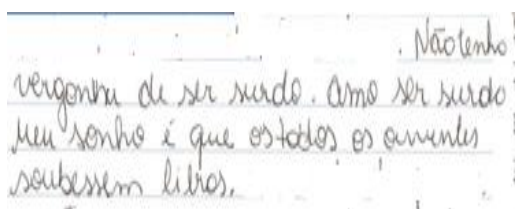 . Não tenho
vergonha de ser surdo. Amo ser surdo
Meu sonho é que os todos os ouvintes
soubessem libras.